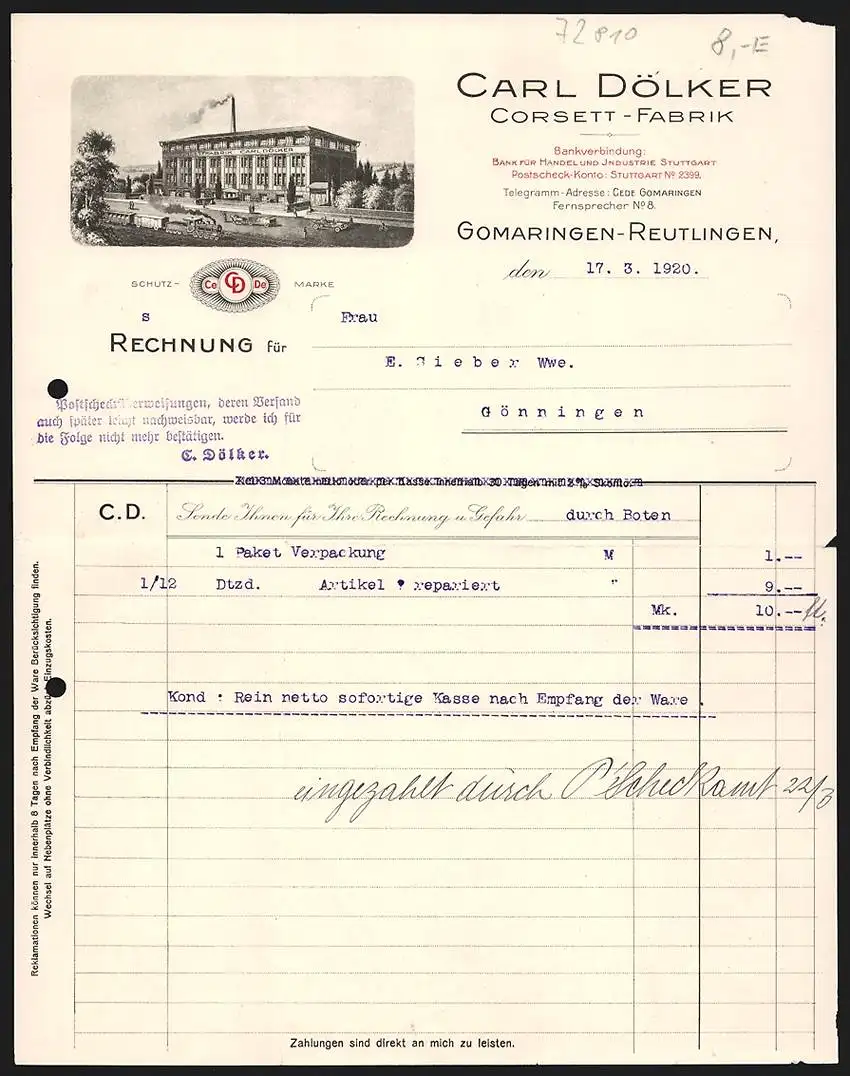 72810
8,-E
CARL DÖLKER
CORSETT-FABRIK
Bankverbindung:
BANK FÜR HANDEL UND JNDUSTRIE STUTTGART
Postscheck-Konto: STUTTGART No 2399.
Telegramm-Adresse: CEDE GOMARINGEN
Fernsprecher No 8.
GOMARINGEN-REUTLINGEN,
den 17. 3. 1920.
CARL DÖLKER
SCHUTZ- Ce CD De MARKE
s Frau
RECHNUNG für
E. Sieber Wwe.
Gönningen
Postscheck-Überweisungen, deren Versand
auch später leicht nachweisbar, werde ich für
die Folge nicht mehr bestätigen.
C. Dölker.
C.D. Sende Ihnen für Ihre Rechnung u. Gefahr durch Boten
1 Paket Verpackung M 1.--
1/12 Dtzd. Artikel ? repariert " 9.--
Mk. 10.--
Kond : Rein netto sofortige Kasse nach Empfang der Ware .
eingezahlt durch P'Scheckamt 22/3
Reklamationen können nur innerhalb 8 Tagen nach Empfang der Ware Berücksichtigung finden.
Wechsel auf Nebenplätze ohne Verbindlichkeit abzügl. Einzugskosten.
Zahlungen sind direkt an mich zu leisten.